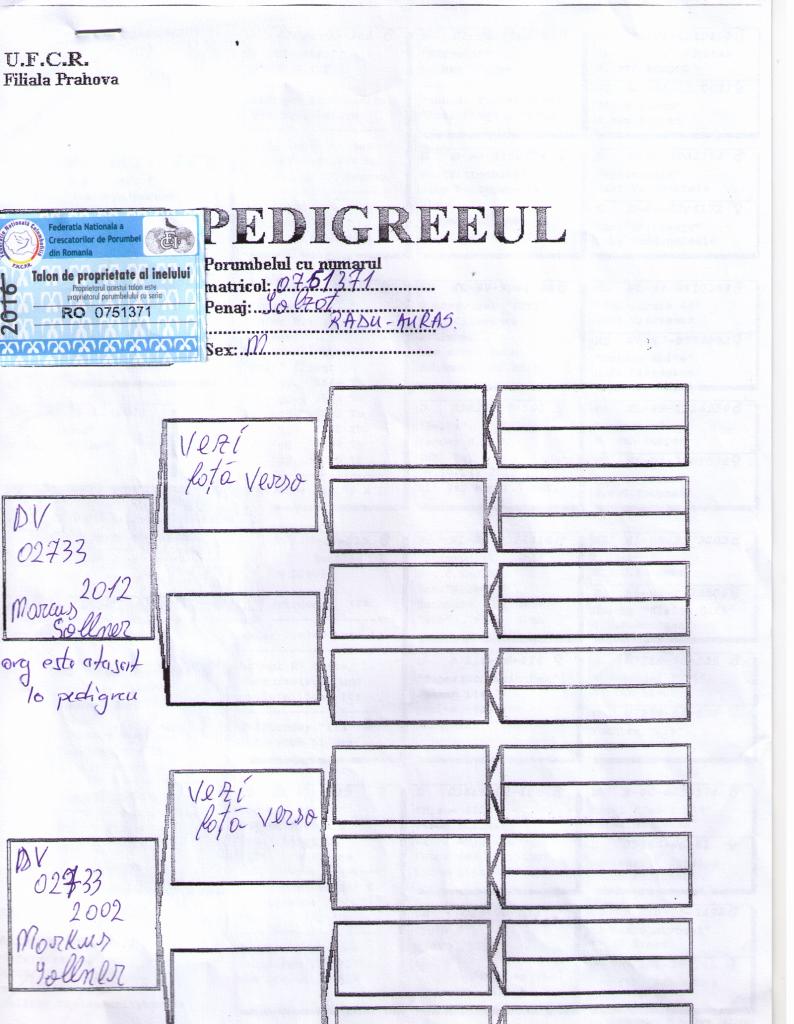 U.F.C.R.
Filiala Prahova
PEDIGREEUL
Federatia Nationala a
Crescatorilor de Porumbei
din Romania
Talon de proprietate al inelului
Proprietarul acestui talon este
proprietarul porumbelului cu seria
RO 0751371
2016
Porumbelul cu numarul
matricol: 0751371
Penaj: Solzat
RADU-AURAS.
Sex: M
vezi
fotă verso
DV
02733
2012
Marcus
Sollner
org este atasat
la pedigreu
vezi
fotă verso
DV
02733
2002
Markus
Sollner